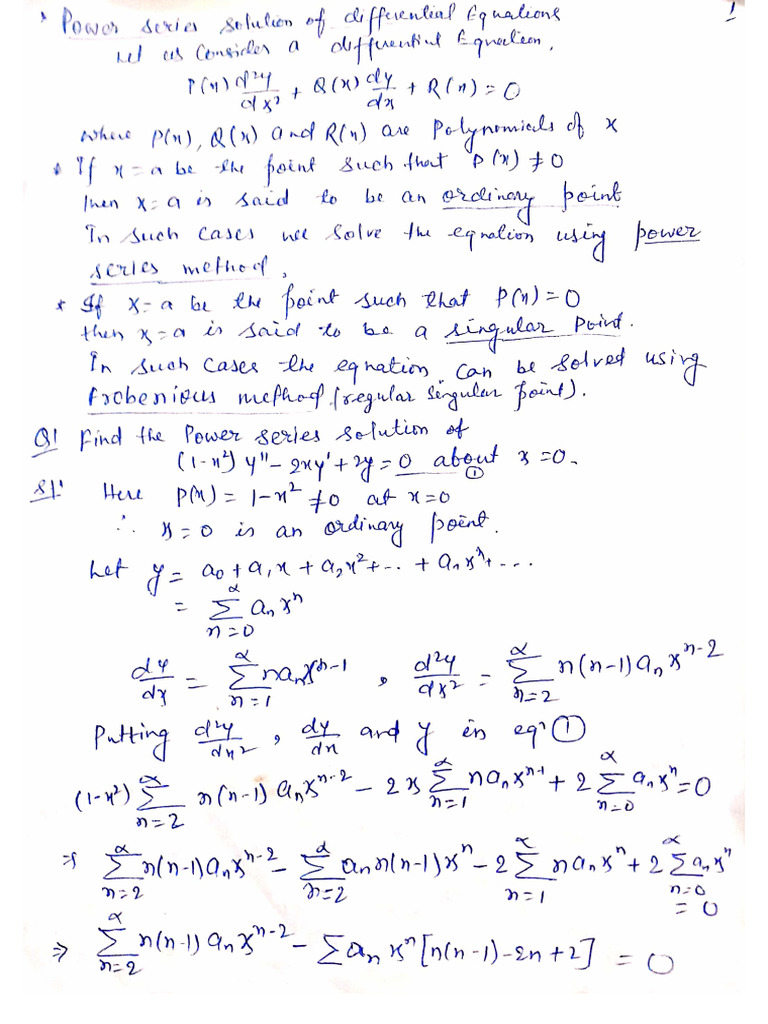 * Power series solution of differential Equations 1
Let us Consider a differential Equation,
P(x) d²y/dx² + Q(x) dy/dx + R(x) = 0
where P(x), Q(x) and R(x) are Polynomials of x
* If x = a be the point such that P(x) ≠ 0
then x = a is said to be an ordinary point
In such cases we solve the equation using power
series method.
* If x = a be the point such that P(x) = 0
then x = a is said to be a singular point.
In such cases the equation can be solved using
Frobenious method (regular singular point).
Q1 Find the Power series solution of
(1-x²) y'' - 2xy' + 2y = 0 about x = 0. ①
Sl: Here P(x) = 1-x² ≠ 0 at x = 0
∴ x = 0 is an ordinary point.
Let y = a₀ + a₁x + a₂x² + ... + aₙxⁿ + ...
= ∑_{n=0}^{∝} aₙxⁿ
dy/dx = ∑_{n=1}^{∝} naₙxⁿ⁻¹ , d²y/dx² = ∑_{n=2}^{∝} n(n-1)aₙxⁿ⁻²
Putting d²y/dx² , dy/dx and y in eqⁿ ①
(1-x²) ∑_{n=2}^{∝} n(n-1) aₙxⁿ⁻² - 2x ∑_{n=1}^{∝} naₙxⁿ⁻¹ + 2 ∑_{n=0}^{∝} aₙxⁿ = 0
⇒ ∑_{n=2}^{∝} n(n-1)aₙxⁿ⁻² - ∑_{n=2}^{∝} aₙn(n-1)xⁿ - 2 ∑_{n=1}^{∝} naₙxⁿ + 2 ∑_{n=0}^{∝} aₙxⁿ = 0
⇒ ∑_{n=2}^{∝} n(n-1) aₙxⁿ⁻² - ∑ aₙxⁿ [n(n-1)-2n+2] = 0